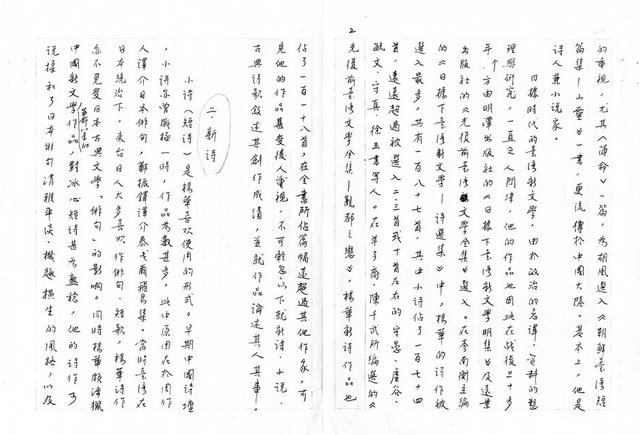 的重視，尤其〈薄命〉一篇，為胡風選入《朝鮮臺灣短
篇集—山靈》一書，更流傳於中國大陸。基本上，他是
詩人兼小說家。
日據時代的臺灣新文學，由於政治的忌諱、資料的整
理與研究，一直乏人問津，他的作品也因此在戰後三十多
年，方由明潭出版社的《日據下臺灣新文學明集》及遠景
出版社的《光復前臺灣文學全集》選入。在李南衡主編
的《日據下臺灣新文學—詩選集》中，楊華的詩作被
選入最多，共有一百八十七首，其中小詩佔了一百七十四
首，遠遠超過被選入二、三首或十首左右的守愚、虛谷、
毓文、守真、徐玉書等人。在羊子喬、陳千武所編選的《
光復前臺灣文學全集—亂都之戀》，楊華新詩作品也
2
佔了一百一十八首，在全書所佔篇幅遠超過其他作家，可
見他的作品甚受後人重視，不可輕忽。以下就新詩、小說、
古典詩歌敘述其創作成績，並就作品論述其人其事。
二、新詩
小詩（短詩）是楊華喜歡使用的形式。早期中國詩壇
，小詩亦曾盛極一時，作品為數甚多，此中原因在於周作
人譯介日本俳句、鄭振鐸譯介泰戈爾飛鳥集。當時臺灣在
日本統治下，來台日人大多喜歡作俳句、短歌，楊華詩作
亦不免受日本古典文學「俳句」的影響。同時楊華頗涉獵
中國新文學作品，對冰心短詩甚為熟稔，他的詩作可
說揉和了日本俳句清雅平淡、機趣橫生的風格，以及